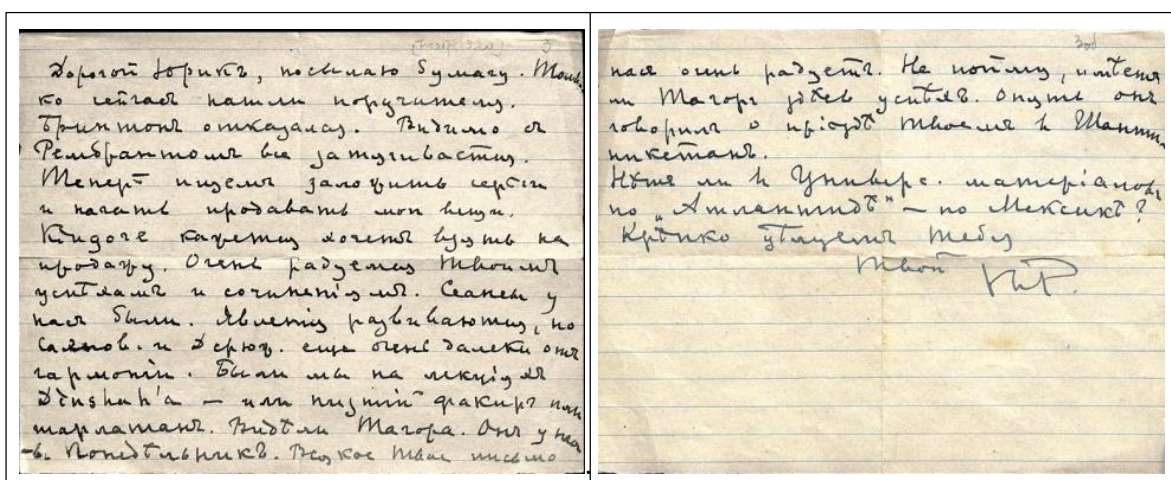 3
Дорогой Юрикъ, посылаю бумагу. Толь-
ко сейчасъ нашли поручителя.
Бринтонъ отказался. Видимо съ
Рембрантомъ все затягивается.
Теперь ищемъ заложить серьги
и начать продавать мои вещи.
кажется хочетъ взять на
продажу. Очень радуемся твоимъ
успѣхамъ и сочиненіямъ. Сеансы у
насъ были. Явленія развиваются, но
и Дерюж. еще очень далеки отъ
гармоніи. Были мы на лекціяхъ
Dinshah'a — или низшій факиръ или
шарлатанъ. Видѣли Тагора. Онъ у насъ
въ понедѣльникъ. Всякое твое письмо
3об
насъ очень радуетъ. Не пойму, имѣетъ
ли Тагоръ здѣсь успѣхъ. Опять онъ
говорилъ о пріѣздѣ твоемъ къ Шанти-
никетанъ.
Нѣтъ ли къ Универс. матеріаловъ
по „Атлантидѣ" — по Мексикѣ?
Крѣпко цѣлуемъ тебя
Твой НР.